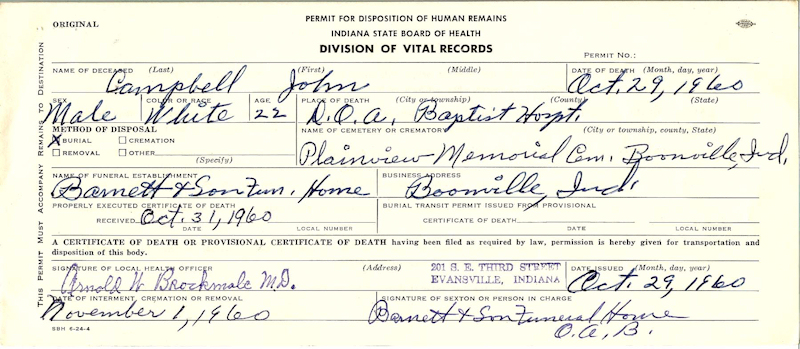 ORIGINAL
PERMIT FOR DISPOSITION OF HUMAN REMAINS
INDIANA STATE BOARD OF HEALTH
DIVISION OF VITAL RECORDS
PERMIT NO.:
THIS PERMIT MUST ACCOMPANY REMAINS TO DESTINATION
NAME OF DECEASED (Last) (First) (Middle) DATE OF DEATH (Month, day, year)
Campbell John Oct. 29, 1960
SEX COLOR OR RACE AGE PLACE OF DEATH (City or township) (County) (State)
Male White 22 D.O.A. Baptist Hospt.
METHOD OF DISPOSAL NAME OF CEMETERY OR CREMATORY (City or township, county, State)
X BURIAL CREMATION
REMOVAL OTHER (Specify)
Plainview Memorial Cem. Boonville, Ind.
NAME OF FUNERAL ESTABLISHMENT BUSINESS ADDRESS
Barnett & Son Fun. Home Boonville, Ind.
PROPERLY EXECUTED CERTIFICATE OF DEATH BURIAL TRANSIT PERMIT ISSUED FROM PROVISIONAL
RECEIVED Oct. 31, 1960 CERTIFICATE OF DEATH
DATE LOCAL NUMBER DATE LOCAL NUMBER
A CERTIFICATE OF DEATH OR PROVISIONAL CERTIFICATE OF DEATH having been filed as required by law, permission is hereby given for transportation and
disposition of this body.
SIGNATURE OF LOCAL HEALTH OFFICER (Address) 201 S. E. THIRD STREET DATE ISSUED (Month, day, year)
Arnold W Brockmole M.D. EVANSVILLE, INDIANA Oct. 29, 1960
DATE OF INTERMENT, CREMATION OR REMOVAL SIGNATURE OF SEXTON OR PERSON IN CHARGE
November 1, 1960 Barnett & Son Funeral Home
O.A.B.
SBH 6-24-4